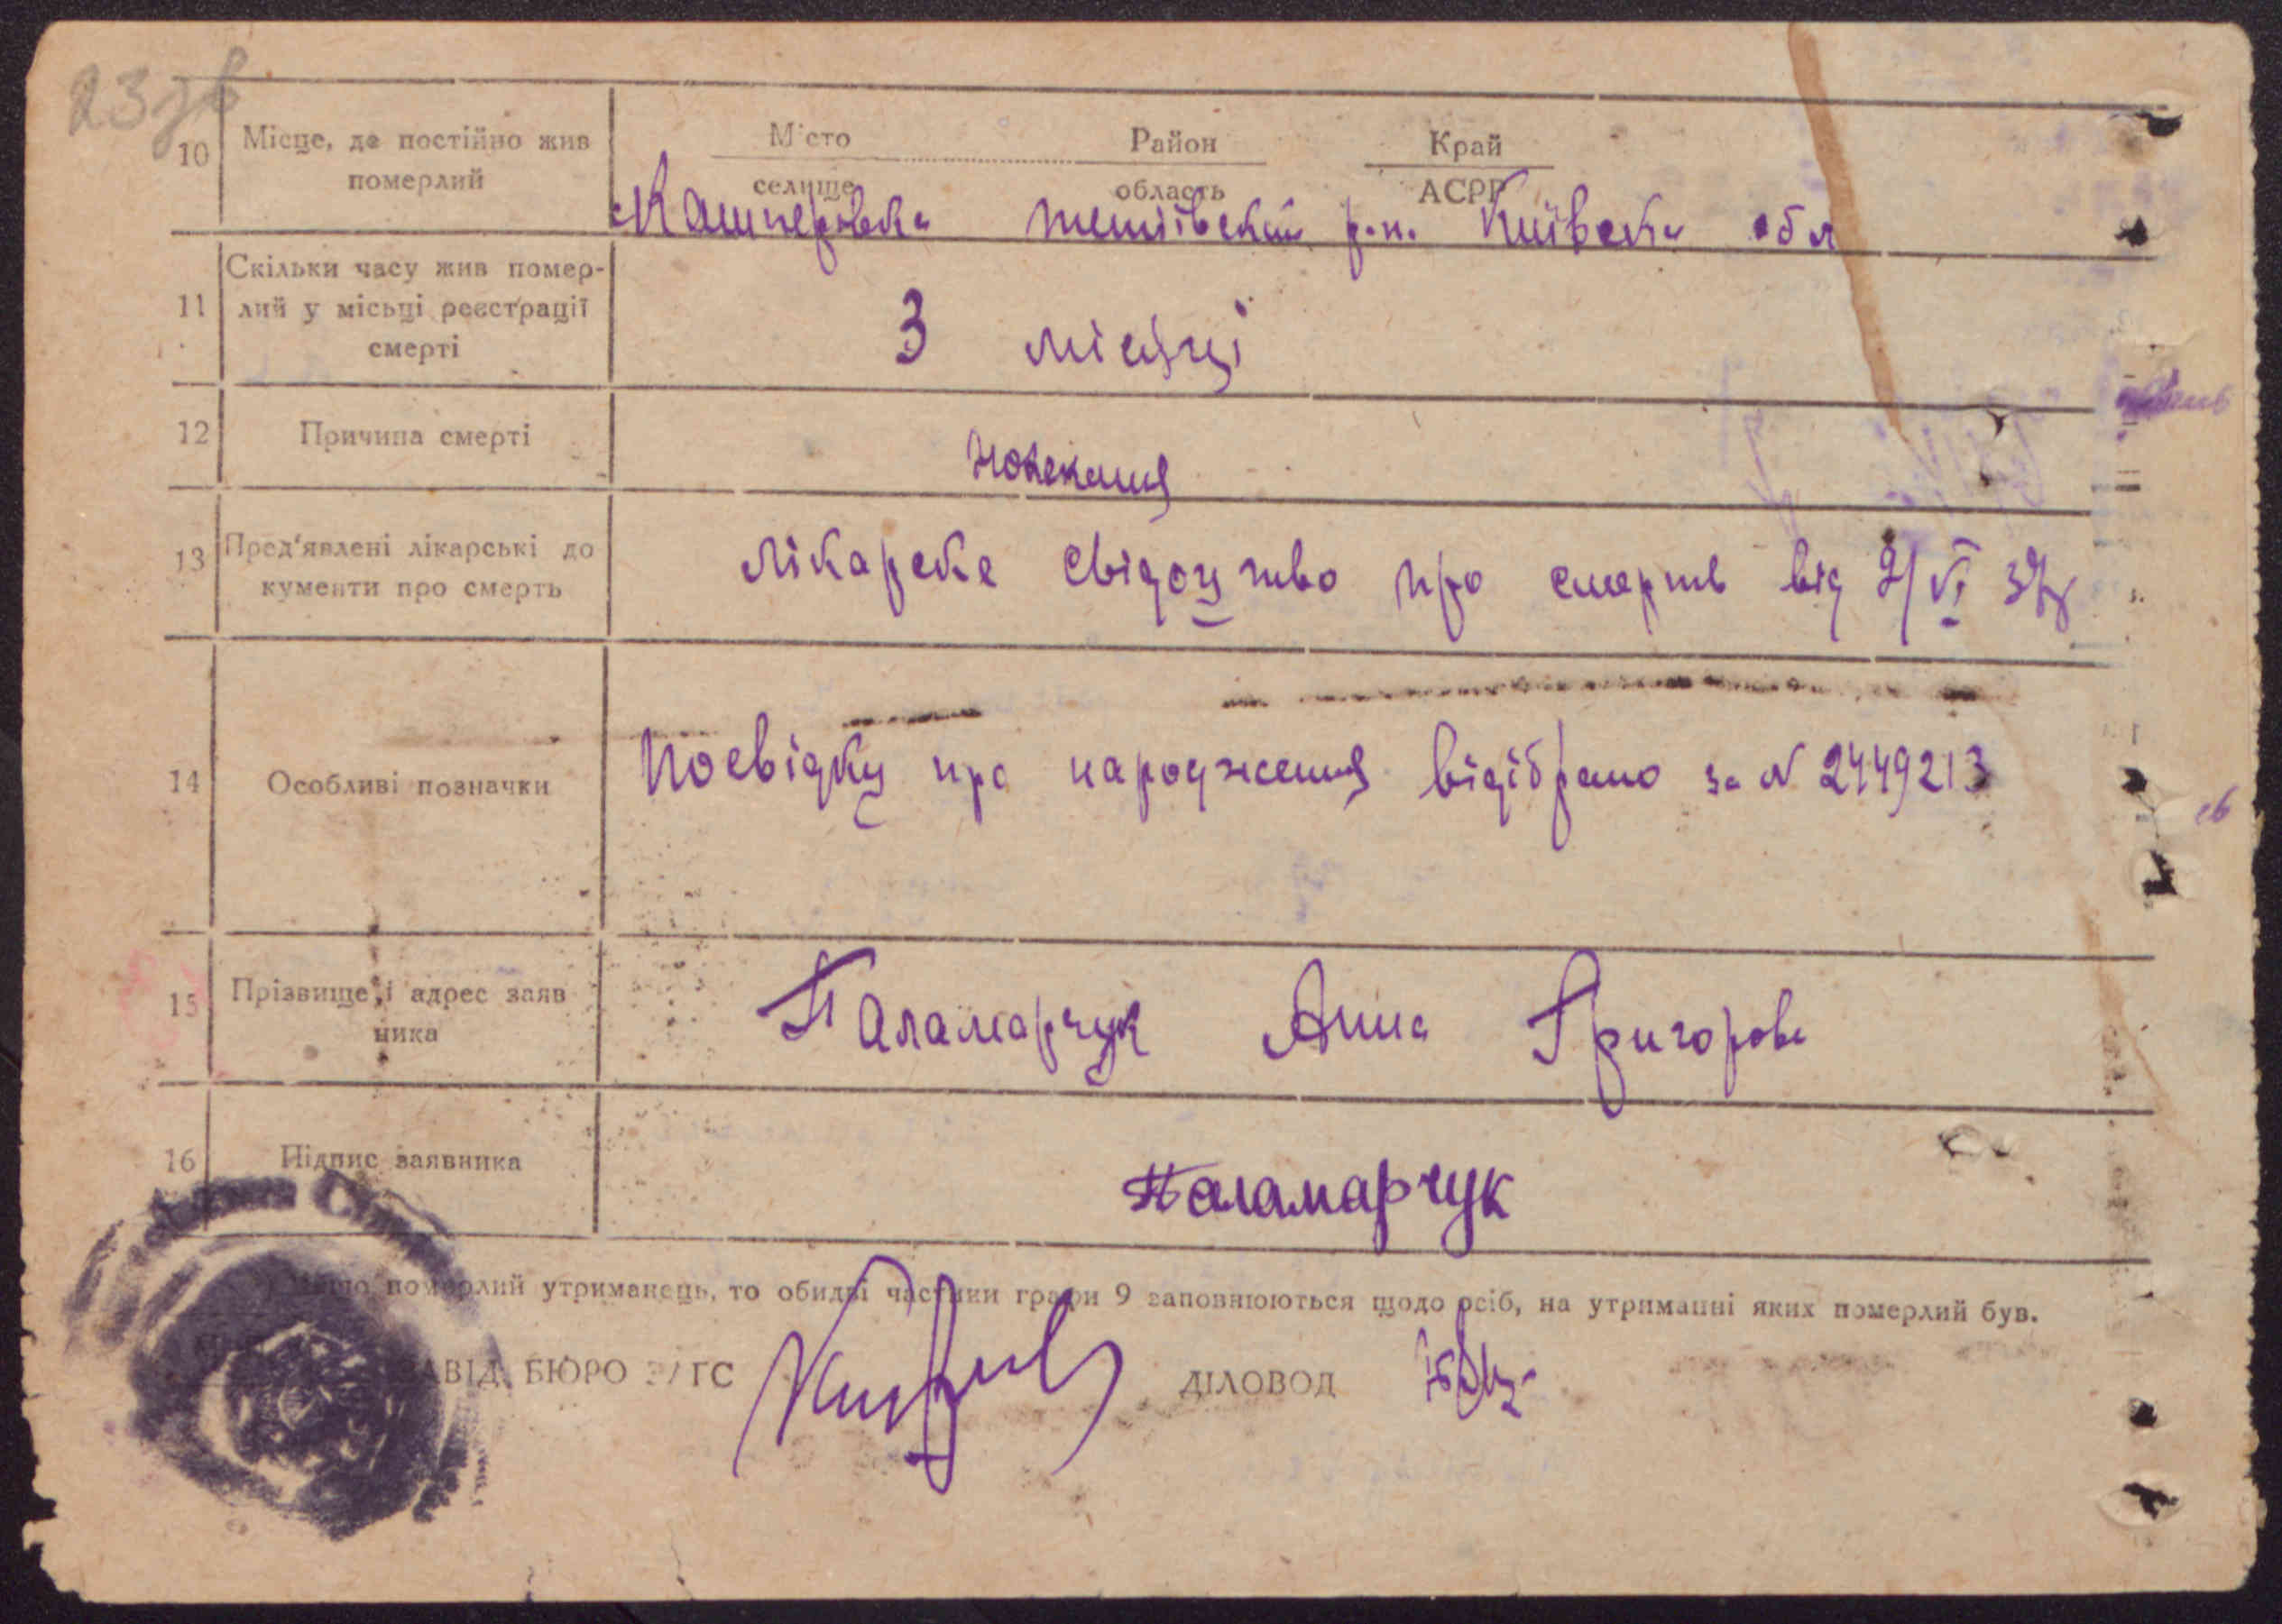 23зв
10 Місце, де постійно жив
померлий
Місто Район Край
селище область АСРР
Кашперовка тетіївский р.н. Київска обл
11 Скільки часу жив помер-
лий у місьці реєстрації
смерті
3 місяці
12 Причина смерті
13 Пред'явлені лікарські до
кументи про смерть
лікарске свідоцтво про смерть від
14 Особливі позначки
Посвідку про народження відібрано за N 2449213
15 Прізвище і адрес заяв
ника
Паламарчук Анна Григоровн
16 Підпис заявника
Паламарчук
померлий утриманець, то обидві частини графи 9 заповнюються щодо осіб, на утриманні яких померлий був.
ЗАВІД. БЮРО ЗАГС
ДІЛОВОД